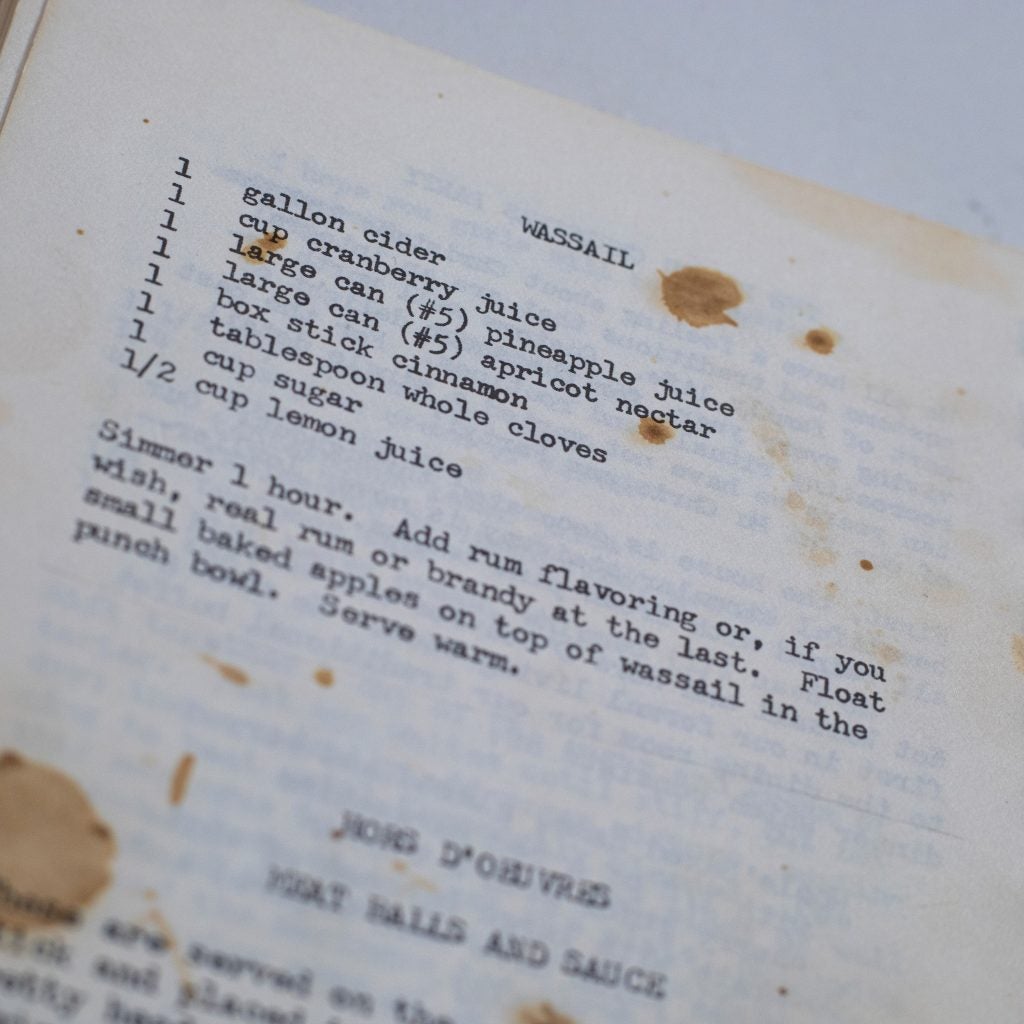 WASSAIL
1 gallon cider
1 cup cranberry juice
1 large can (#5) pineapple juice
1 large can (#5) apricot nectar
1 box stick cinnamon
1 tablespoon whole cloves
1 cup sugar
1/2 cup lemon juice
Simmer 1 hour. Add rum flavoring or, if you
wish, real rum or brandy at the last. Float
small baked apples on top of wassail in the
punch bowl. Serve warm.
HORS D'OEUVRES
MEAT BALLS AND SAUCE
These are served on the
and placed